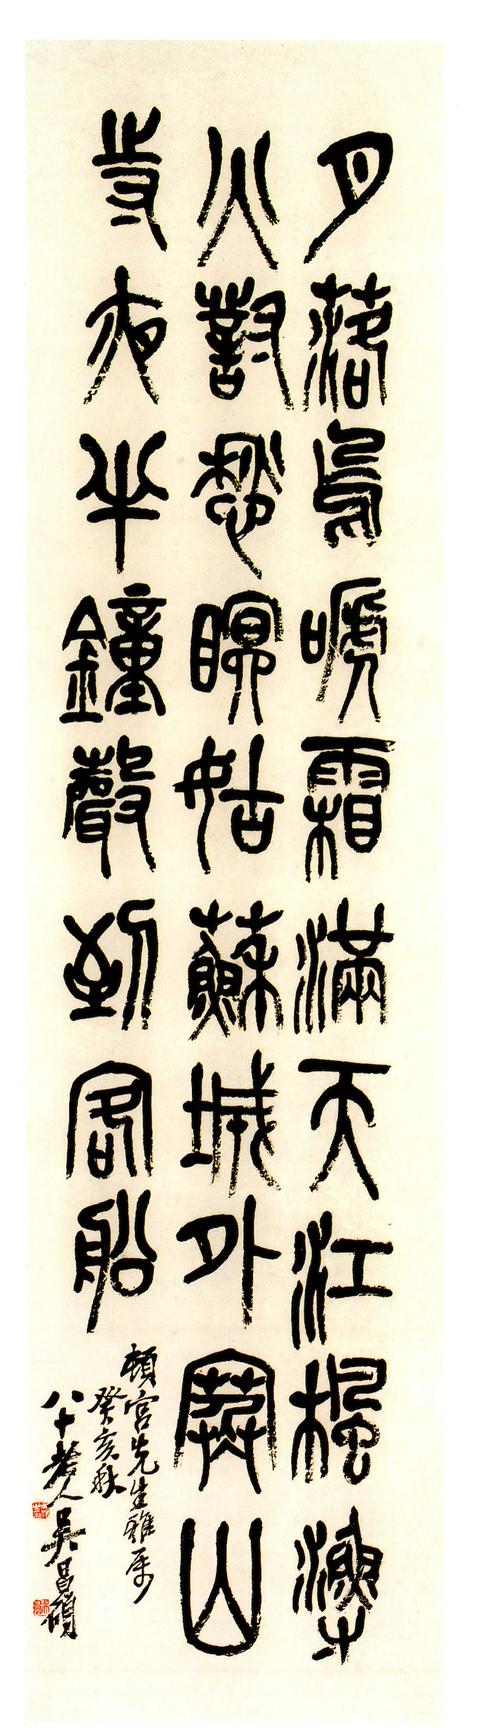 月落烏嗁霜滿天江楓漁
火對愁瞑姑蘇城外寒山
寺夜半鐘聲到客船
頓宮先生雅屬
癸亥秋
八十老人吳昌碩